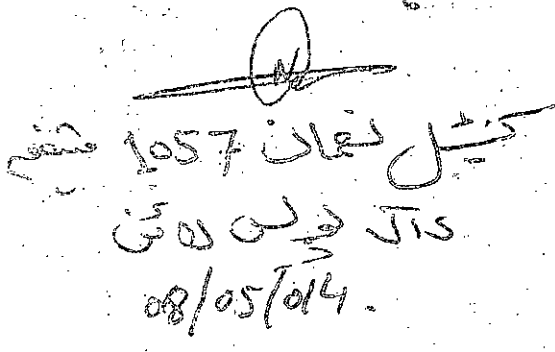 کنسٹیبل نعمان 1057 متعین
ڈاک پولیس لائن
08/05/014.